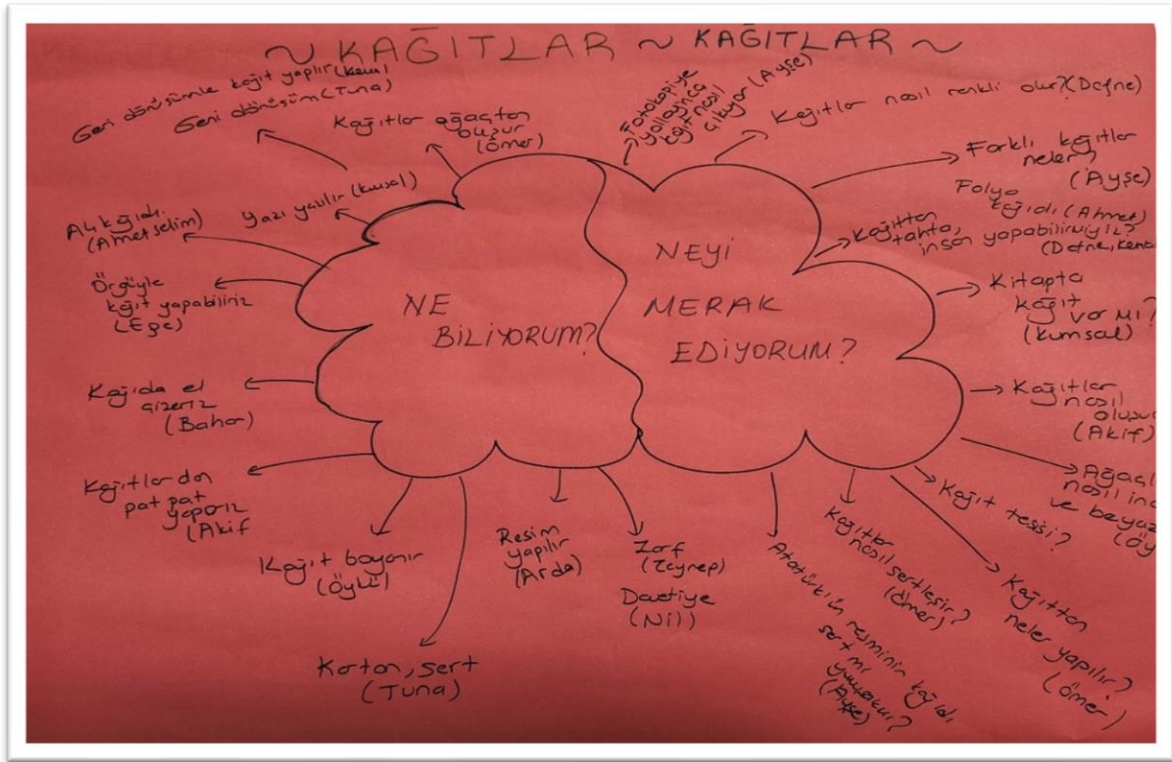 ~ KAĞITLAR ~ KAĞITLAR ~
Geri dönüşümle kağıt yapılır
Geri dönüşüm (Tuna)
Kağıtlar ağaçtan
oluşur
(Ömer)
Yazı yazılır (kumsal)
(Ahmet selim)
Örgüyle
kağıt yapabiliriz
(Ege)
Kağıda el
çizeriz
(Bahar)
Kağıtlardan
pat pat
yaparız
(Akif
Kağıt boyanır
(Öykü)
Karton, sert
(Tuna)
Resim
yapılır
(Arda)
Zarf
(Zeynep)
Davetiye
(Nil)
NE
BİLİYORUM?
NEYİ
MERAK
EDİYORUM?
Fotokopiye
yollayınca
kağıt nasıl
çıkıyor (Ayşe)
Kağıtlar nasıl renkli olur? (Defne)
Farklı kağıtlar
neler?
(Ayşe)
Folyo
kağıdı (Ahmet)
Kağıttan
tahta,
insan yapabilirmiyiz?
(Defne,
Kitapta
kağıt
var mı?
(kumsal)
Kağıtlar
nasıl
(Akif)
nasıl
ve beyaz
Kağıt tesisi?
Kağıttan
neler yapılır?
(Ömer)
Kağıtlar
nasıl sertleşir?
(Ömer)
Atatürk'ün resminin kağıdı
sert mi
yumuşak mı?
(Ayşe)